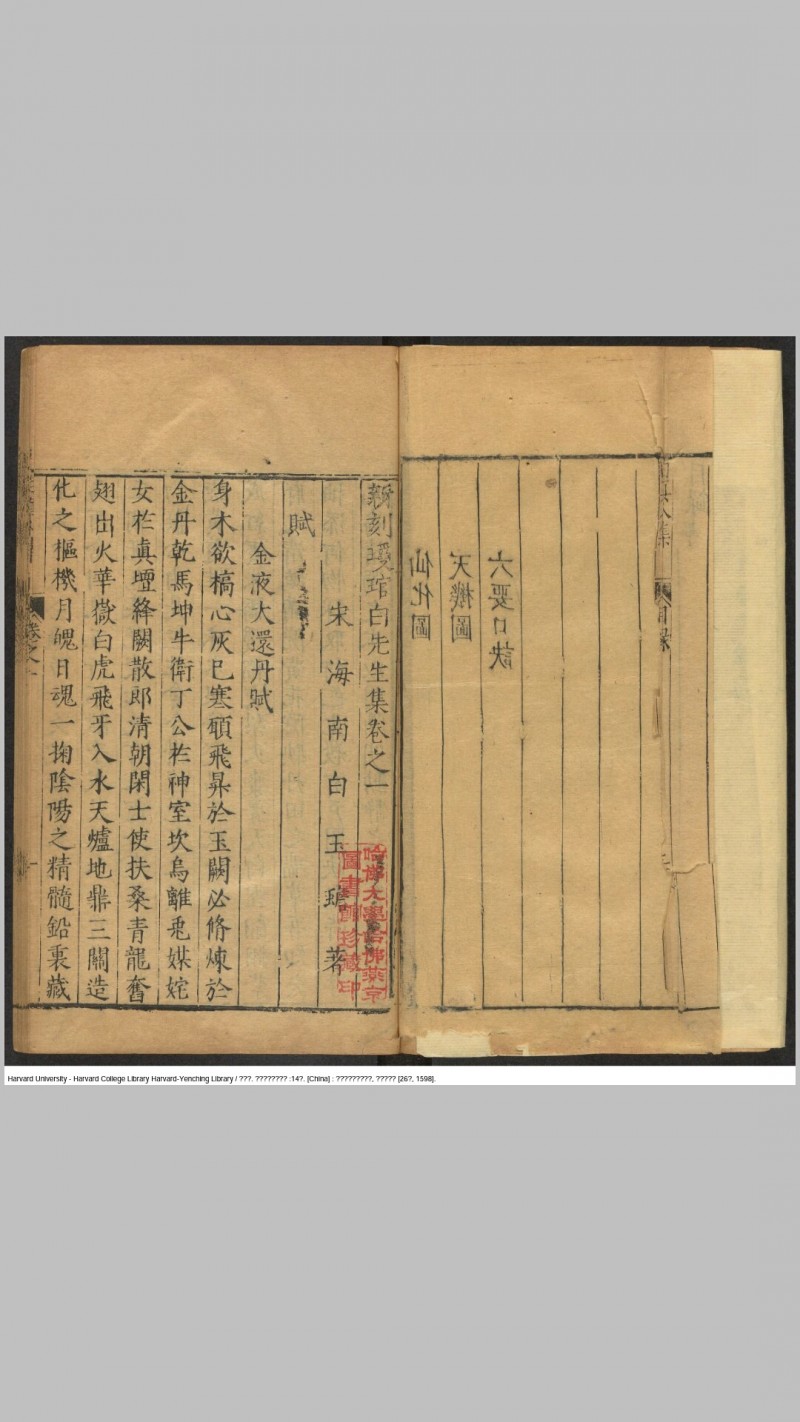 目錄
六要口訣
天機圖
仙化圖
新刻瓊琯白先生集卷之一
宋海南白玉蟾著
哈佛大學哈佛燕京
圖書館珍藏印
賦
金液大還丹賦
身木欲槁心灰已寒碩飛昇於玉闕必脩煉於
金丹乾馬坤牛衛丁公於神室坎烏離兎媒姹
女於真壇絳闕散郎清朝閑士使扶桑青龍奮
翅出火華嶽白虎飛牙入水天爐地鼎三關造
化之樞機月魄日魂一掬陰陽之精髓鉛裏藏
卷之一
Harvard University - Harvard College Library Harvard-Yenching Library / ???. ???????? :14?. [China] : ?????????, ????? [26?, 1598].